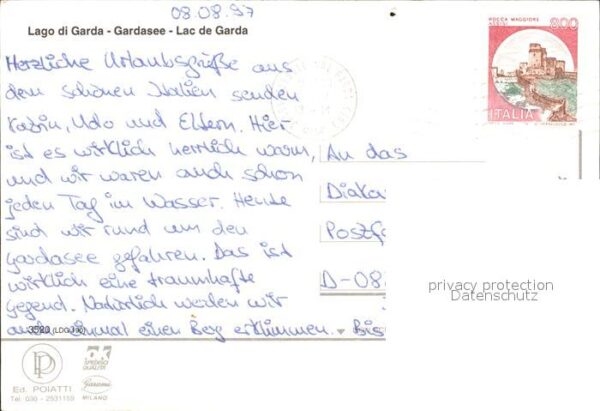 08.08.97
Lago di Garda - Gardasee - Lac de Garda
ROCCA MAGGIORE
ASSISI
800
ITALIA
Herzliche Urlaubsgrüße aus
dem schönen Italien senden
Katrin, Udo und Eltern. Hier
ist es wirklich herrlich warm,
und wir waren auch schon
jeden Tag im Wasser. Heute
sind wir rund um den
Gardasee gefahren. Das ist
wirklich eine traumhafte
Gegend. Natürlich werden wir
auch einmal einen Berg erklimmen. Bis
An das
Diako
Postf
D-08
privacy protection
Datenschutz
(LDG
Ed. POIATTI
Tel. 030 - 2531159
MILANO